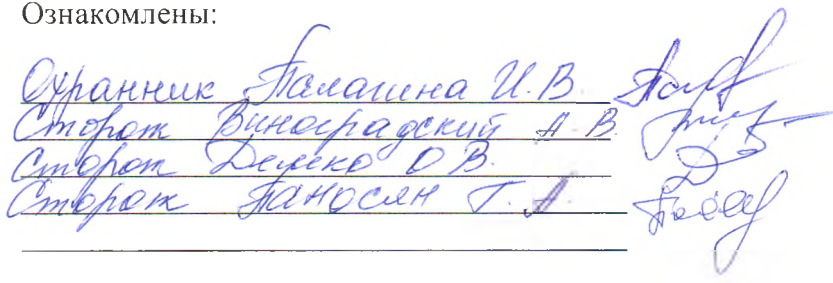 Ознакомлены:
Охранник Палагина И.В
Сторож Виноградский А В
Сторож Демеко О В.
Сторож Паносян Г. А.